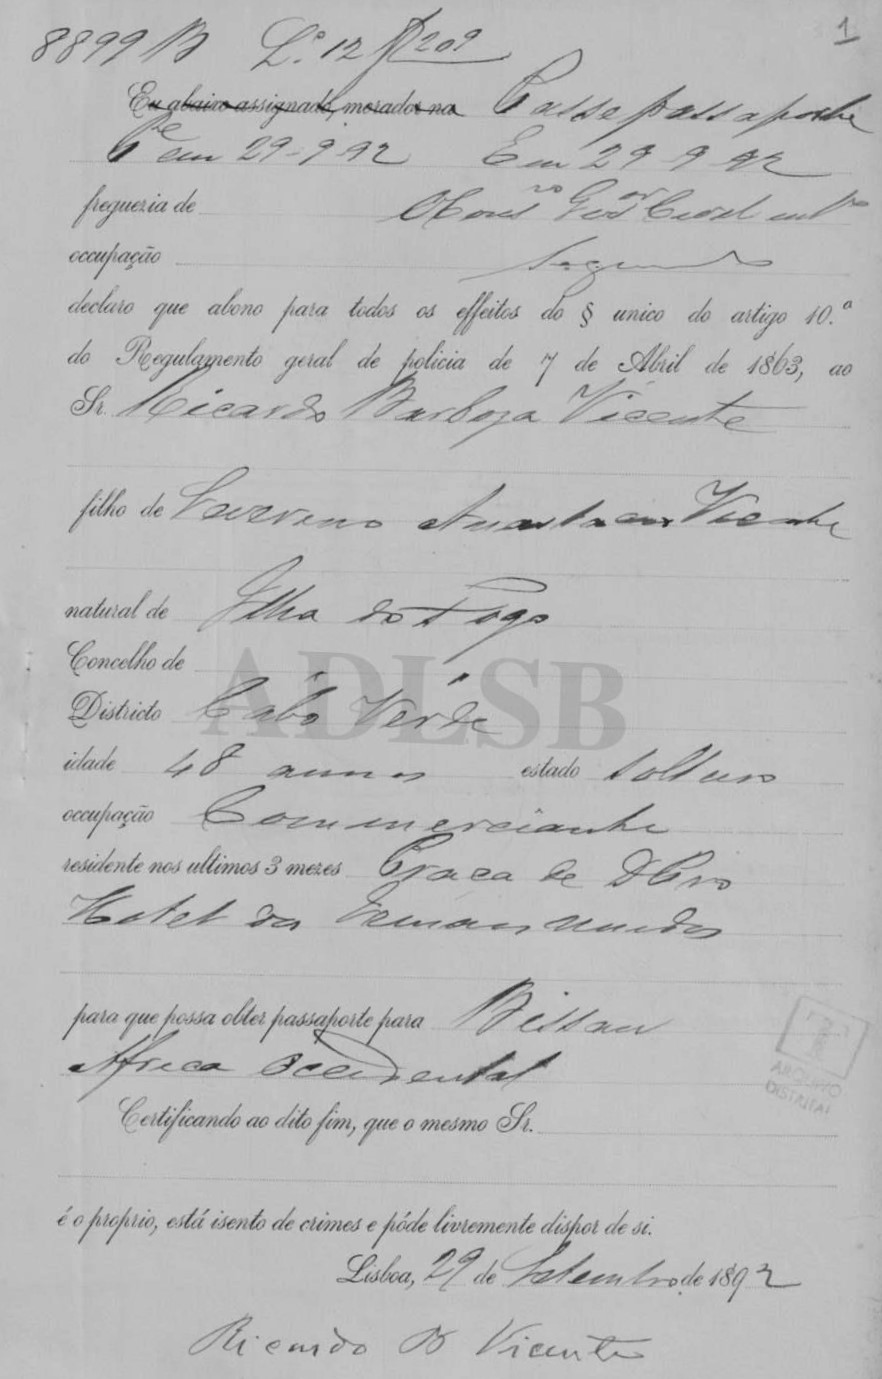 1
8899 B L.º 12 209
Eu abaixo assignado, morador na Passe passaporte
em 29-9-92 Em 29-9-92
freguezia de Civil
occupação
declaro que abono para todos os effeitos do § unico do artigo 10.º
do Regulamento geral de policia de 7 de Abril de 1863, ao
Sr. Ricardo Barboza Vicente
filho de Vicente
natural de Ilha do Fogo
Concelho de "
Districto Cabo Verde
idade 48 annos estado solteiro
occupação Commerciante
residente nos ultimos 3 mezes Praca de
Hotel dos Irmãos Unidos
para que possa obter passaporte para Bissau
Africa Occidental
Certificando ao dito fim, que o mesmo Sr.
é o proprio, está isento de crimes e póde livremente dispor de si.
Lisboa, 29 de Setembro de 1892
Ricardo B Vicente
ADLSB
ARQUIVO
DISTRITAL